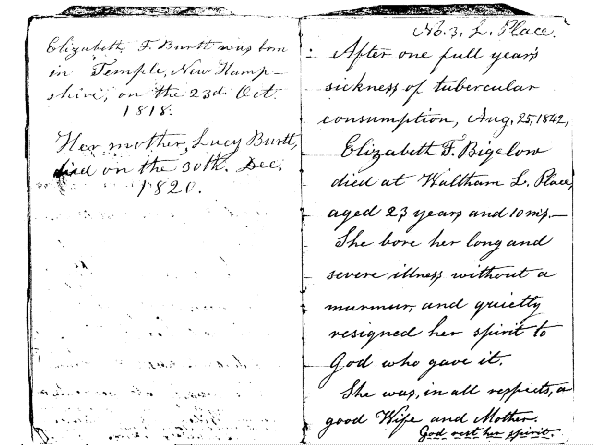 Elizabeth F. Burtt was born
in Temple, New Hamp-
shire, on the 23d Oct.
1818.
Her mother, Lucy Burtt,
died on the 30th. Dec.
1820.
No. 3. L. Place.
After one full year's
sickness of tubercular
consumption, Aug. 25, 1842,
Elizabeth F. Bigelow
died at Waltham L. Place,
aged 23 years and 10 ms.—
She bore her long and
severe illness without a
murmur, and quietly
resigned her spirit to
God who gave it.
She was, in all respects, a
good Wife and Mother.
God rest her spirit.